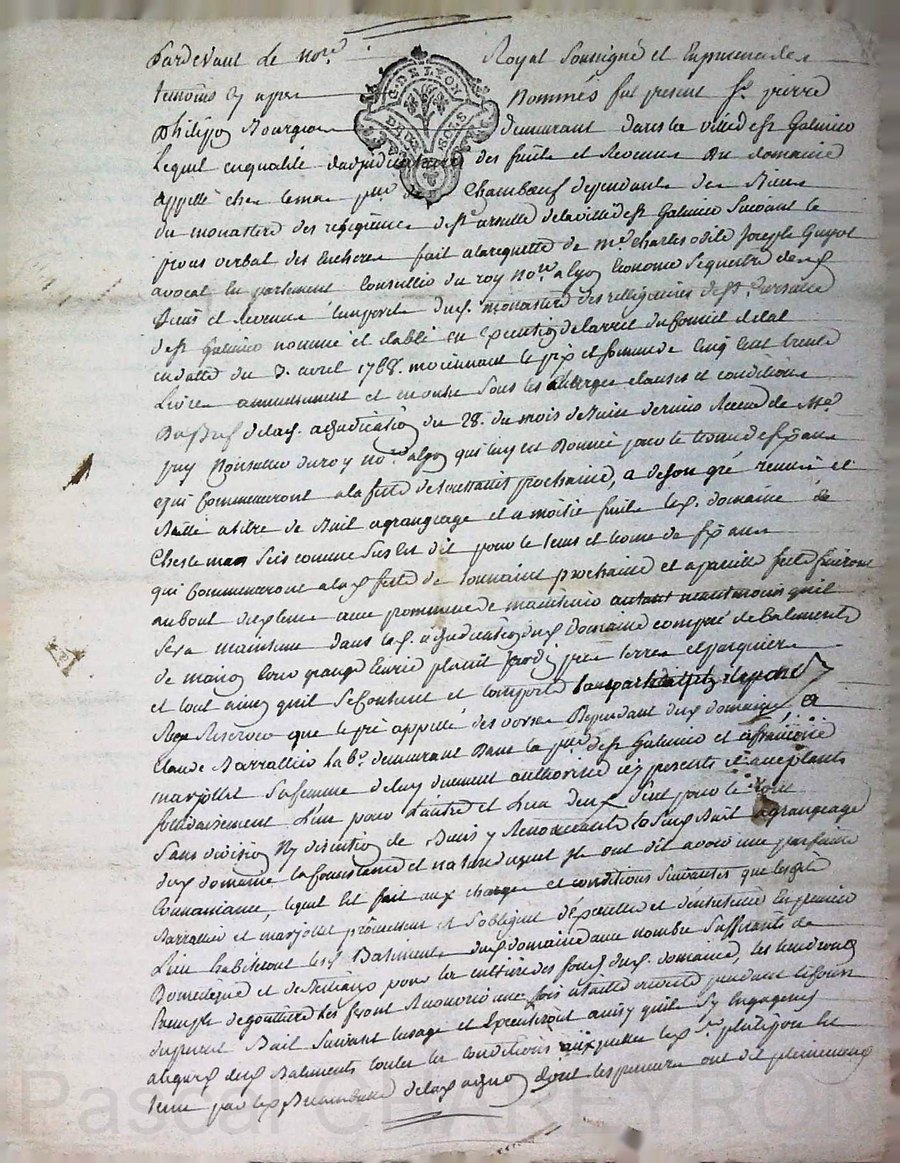 Pardevant le No.re Royal Soussigné et En presence des
temoins Cy apres Nommés fut present S.r pierre
philipon Bourgeois demeurant dans la ville de S.t Galmier
Lequel en qualité dadjudicataire des fruits et Revenus du domaine
appellé ches lemas p.sse de Chambœuf dependant des Biens
du monastere des religieuses de S.te ursulle de la ville de S.t Galmier Suivant le
proces verbal des Encheres fait a la requette de m.re Charles odile Joseph Guyot
avocat En parlement Conseiller du roy No.re a Lyon Econome Sequestre des
Biens et Revenus temporels dud. monastere des relligieuses de S.te Ursulle
de S.t Galmier nommé et Etabli en Execution de larret du Conseil d'Etat
en datte du 3. avril 1768. moiennant le prix et somme de Cinq Cent trente
Livres annuellement et en outre Sous les charges clauses et conditions
de lad. adjudication du 28. du mois de dernier Receue de M.e
Conseiller du roy no.re a Lyon qui luy est Donnée pour le terme de six ans
qui Commenceront a la fete de toussaints prochaine, a de son gré remis et
Baillé a titre de Bail a grangeage et a moitié fruits led. domaine de
Ches le mas Sus comme Sus Est dit pour le tems et terme de six ans
qui Commenceront a lad. fete de toussaint prochaine et a pareille fete finiront
au bout d'iceluy avec promesse de maintenir autant neantmoins quil
Sera maintenu dans lad. adjudication dud. Domaine composé de Batiments
de maison Cour grange Ecurie jardin pres terres et paquiers
et tout ainsy quil se Contient et Comporte
Reserver que le pré appellé des dependant dud. domaine, a
Claude Barrallier lab.r demeurant dans la p.sse de S.t Galmier et a francoise
marjollet Sa femme de luy duement authorisée icy presents et acceptants
solidairement L'un pour L'autre et L'un d'eux Seul pour le tout
Sans division Ny discution de Biens y Renoncants led. Bail a grangeage
dud. domaine la Consistance et nature duquel ils ont dit avoir une parfaite
Connaissance, lequel Est fait aux charges et conditions Suivantes que lesd.
Barrallier et marjollet promettent et S'obligent d'executer et d'entretenir En premier
Lieu habiteront lesd. Batiments dud. domaine avec nombre Suffisants de
Domestiques et de Bestiaux pour la culture des fonds dud. domaine, les tiendront
Exempts de goutieres les feront Recouvrir une fois a taille ouverte pendant le cours
du present Bail Suivant lusage et Executeront ainsy quils Sy Engagent
a legard des Batiments toutes les conditions auxquelles led. S.r philipon Est
tenu par lad. dont les preneurs ont dit pleinement
Pascal CHAREYRON
G. DE LYON
DEUX SOLS